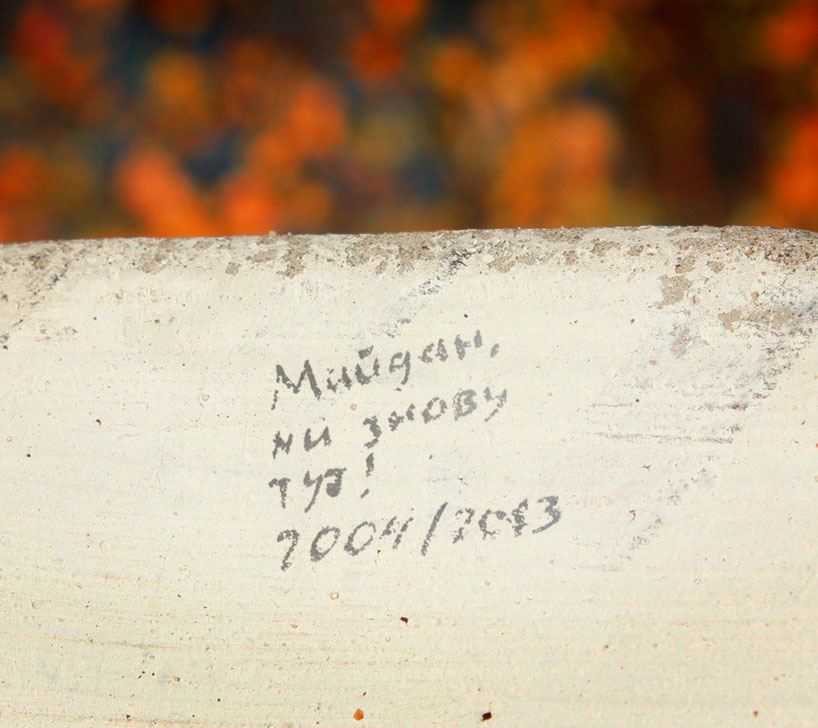 Майдан,
ми знову
тут!
2004/2013